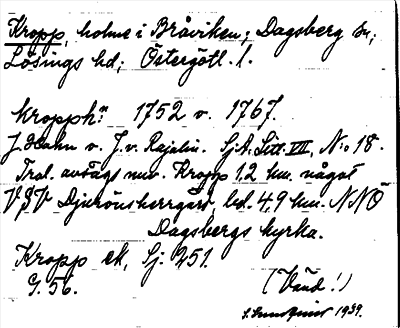 Kropp, holme i Bråviken; Dagsberg sn;
Lösings hd; Östergötl. l.
Kropph:n 1752 v. 1767.
J. Hahn v. J. v. Rajalin. Sj.A. Litt. VII, N:o 18.
Trol. avsågs nuv. Kropp 1,2 km. något
VSV Djurönsherrgård, bel. 4,9 km. NNÖ
Dagsbergs kyrka.
Kropp ek, Sj. 251.
G. 56. (Vänd!)
1939.